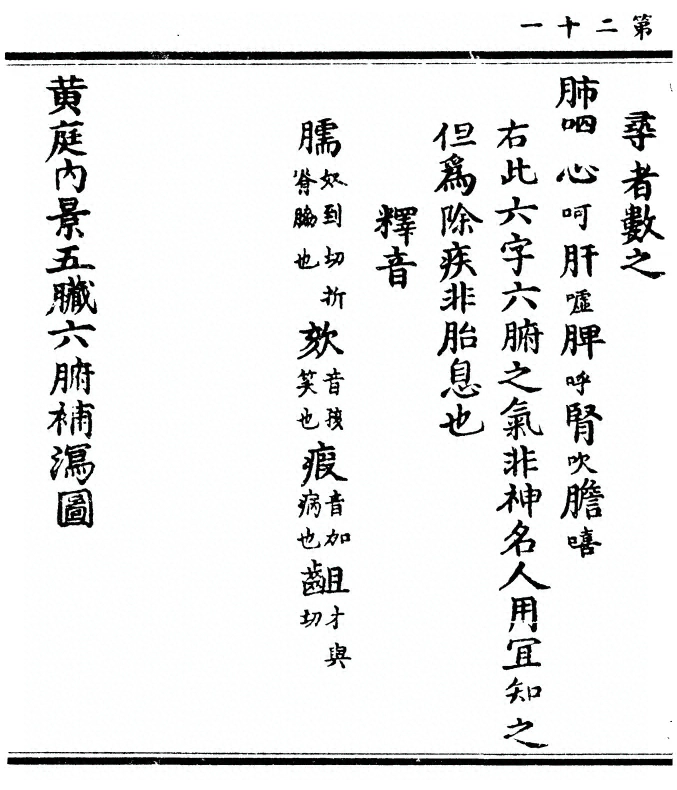 第二十一
尋者數之
肺呬心呵肝噓脾呼腎吹膽嘻
右此六字六腑之氣非神名人用宜知之
但為除疾非胎息也
釋音
臑奴到切折脊臑也欬音孩笑也瘕音加病也齟才與切
黃庭內景五臟六腑補瀉圖